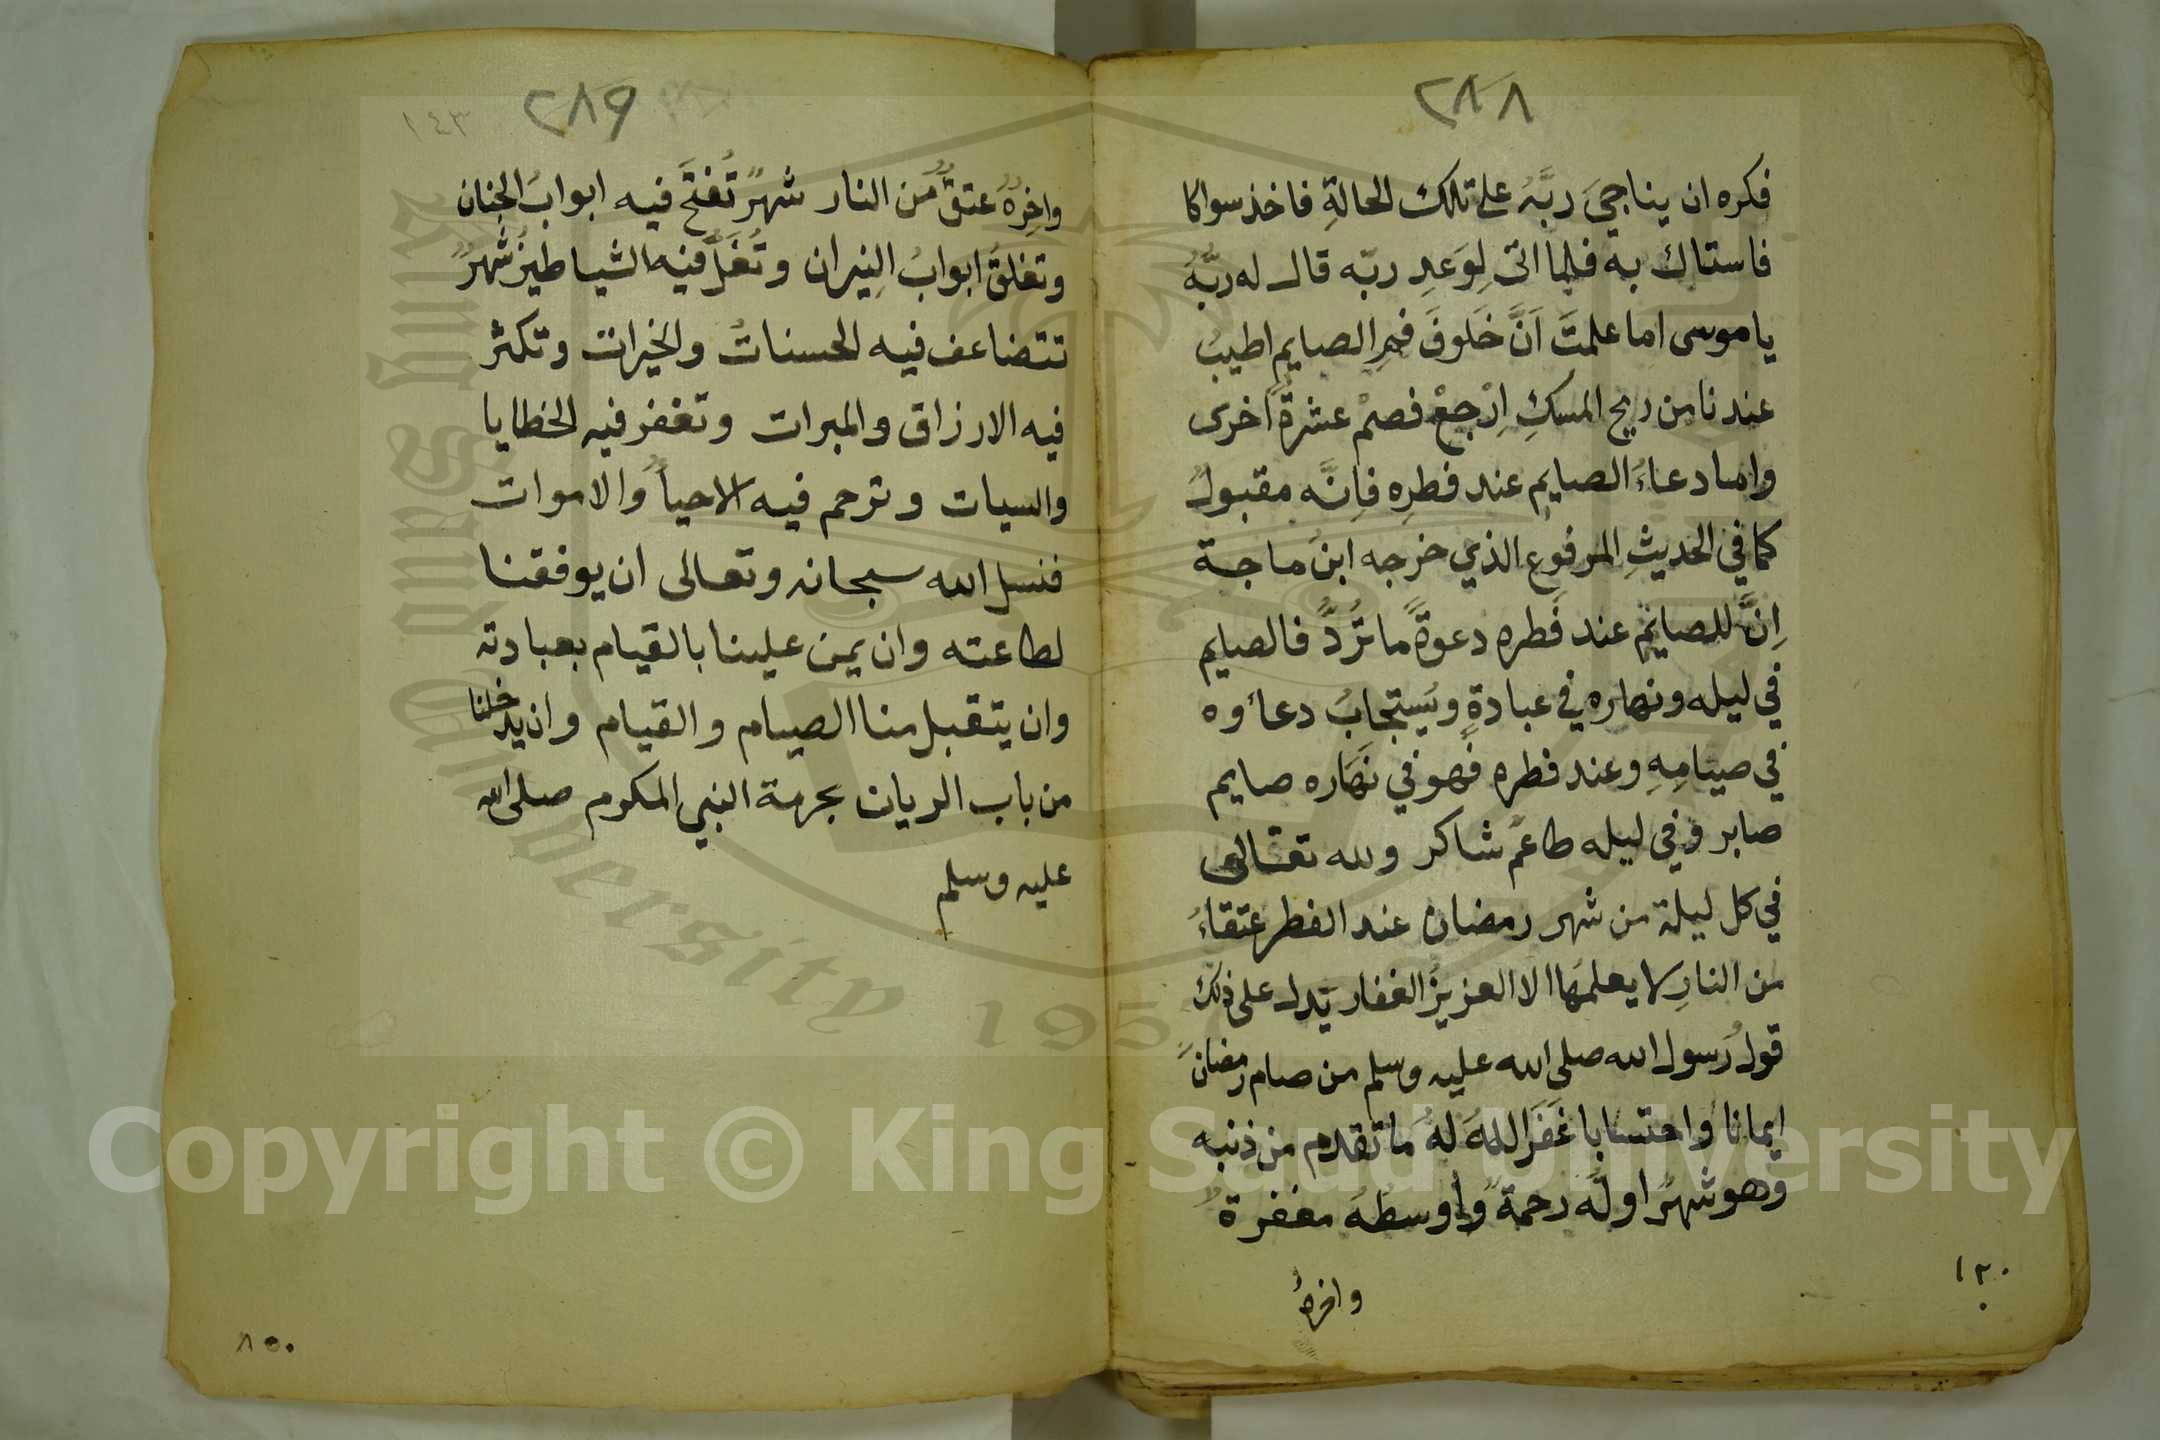 ٢٨٨
فكره ان يناجيَ ربَّهُ على تلك الحالةِ فاخذ سواكا
فاستاك به فلما اتى لِوَعدِ ربّه قال له ربُّهُ
يا موسى اما علمتَ اَنَّ خَلوفَ فمِ الصايمِ اطيبُ
عندنا من ريح المسكِ اِرْجعْ فصمْ عشرةً اُخرى
واما دعاءُ الصايمِ عند فطرِه فاِنَّه مقبولٌ
كما في الحديثِ المرفوع الذي خرجه ابنُ ماجة
اِنَّ للصايمِ عند فَطره دعوةً ما تُردُّ فالصايم
في ليله ونهاره في عبادةٍ ويُستجابُ دعاؤه
في صيَامِهِ وعند فطره فهو في نهَاره صايم
صابر وفي ليله طاعم شاكر ولله تعالى
في كل ليلة من شهر رمضان عند الفطر عتقاءُ
من النارِ لا يعلمهَا الا العزيزُ الغفار يَدل على ذلك
قولُ رسول الله صلى الله عليه وسلم من صام رمضانَ
ايمانا واحتسابا غَفَرَ اللهُ لهُ ما تقدم من ذنبه
وهو شهرٌ اولُه رحمةٌ وأوسطُهُ مغفرةٌ
واخرهُ
١٢٠
٢٨٩
١٤٣
واخِرُهُ عتقٌ من النار شهرٌ تُفتَح فيه ابوابُ الجنان
وتغلقُ ابوابُ النِيران وتُغَلُّ فيه الشياطينُ شهرٌ
تتضاعف فيه الحسناتُ والخيرات وتكثر
فيه الارزاق والمبرات وتغفر فيه الخطايا
والسيات وترحم فيه الاحياءُ والاموات
فنسل الله سبحانه وتعالى ان يوفقنا
لطاعته وان يمن علينا بالقيام بعبادته
وان يتقبل منا الصيام والقيام وان يدخلنا
من باب الريان بحرمة النبي المكرم صلى الله
عليه وسلم
٨٥٠
King Saud University 195
Copyright © King Saud University